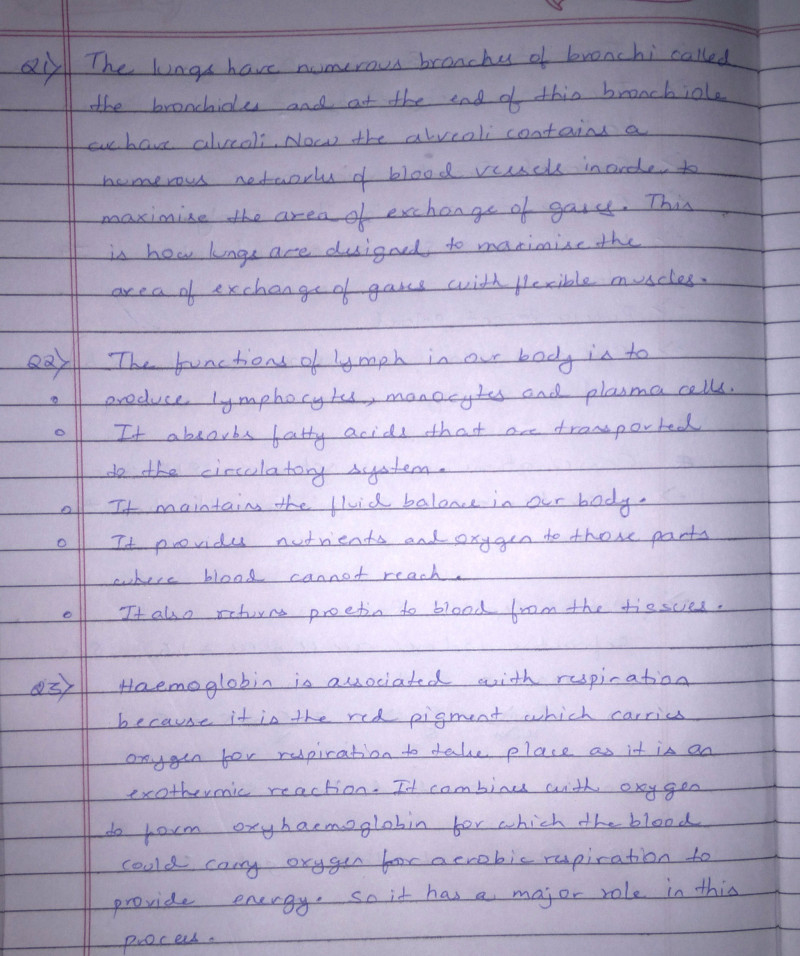 Q1) The lungs have numerous branches of bronchi called
the bronchioles and at the end of this bronchiole
we have alveoli. Now the alveoli contains a
numerous networks of blood vessels inorder to
maximise the area of exchange of gases. This
is how lungs are designed to maximise the
area of exchange of gases with flexible muscles.
Q2) The functions of lymph in our body is to
o produce lymphocytes, monocytes and plasma cells.
o It absorbs fatty acids that are transported
to the circulatory system.
o It maintains the fluid balance in our body.
o It provides nutrients and oxygen to those parts
where blood cannot reach.
o It also returns proetin to blood from the tiessues.
Q3) Haemoglobin is associated with respiration
because it is the red pigment which carries
oxygen for respiration to take place as it is an
exothermic reaction. It combines with oxygen
to form oxyhaemoglobin for which the blood
could carry oxygen for aerobic respiration to
provide energy. So it has a major role in this
process.